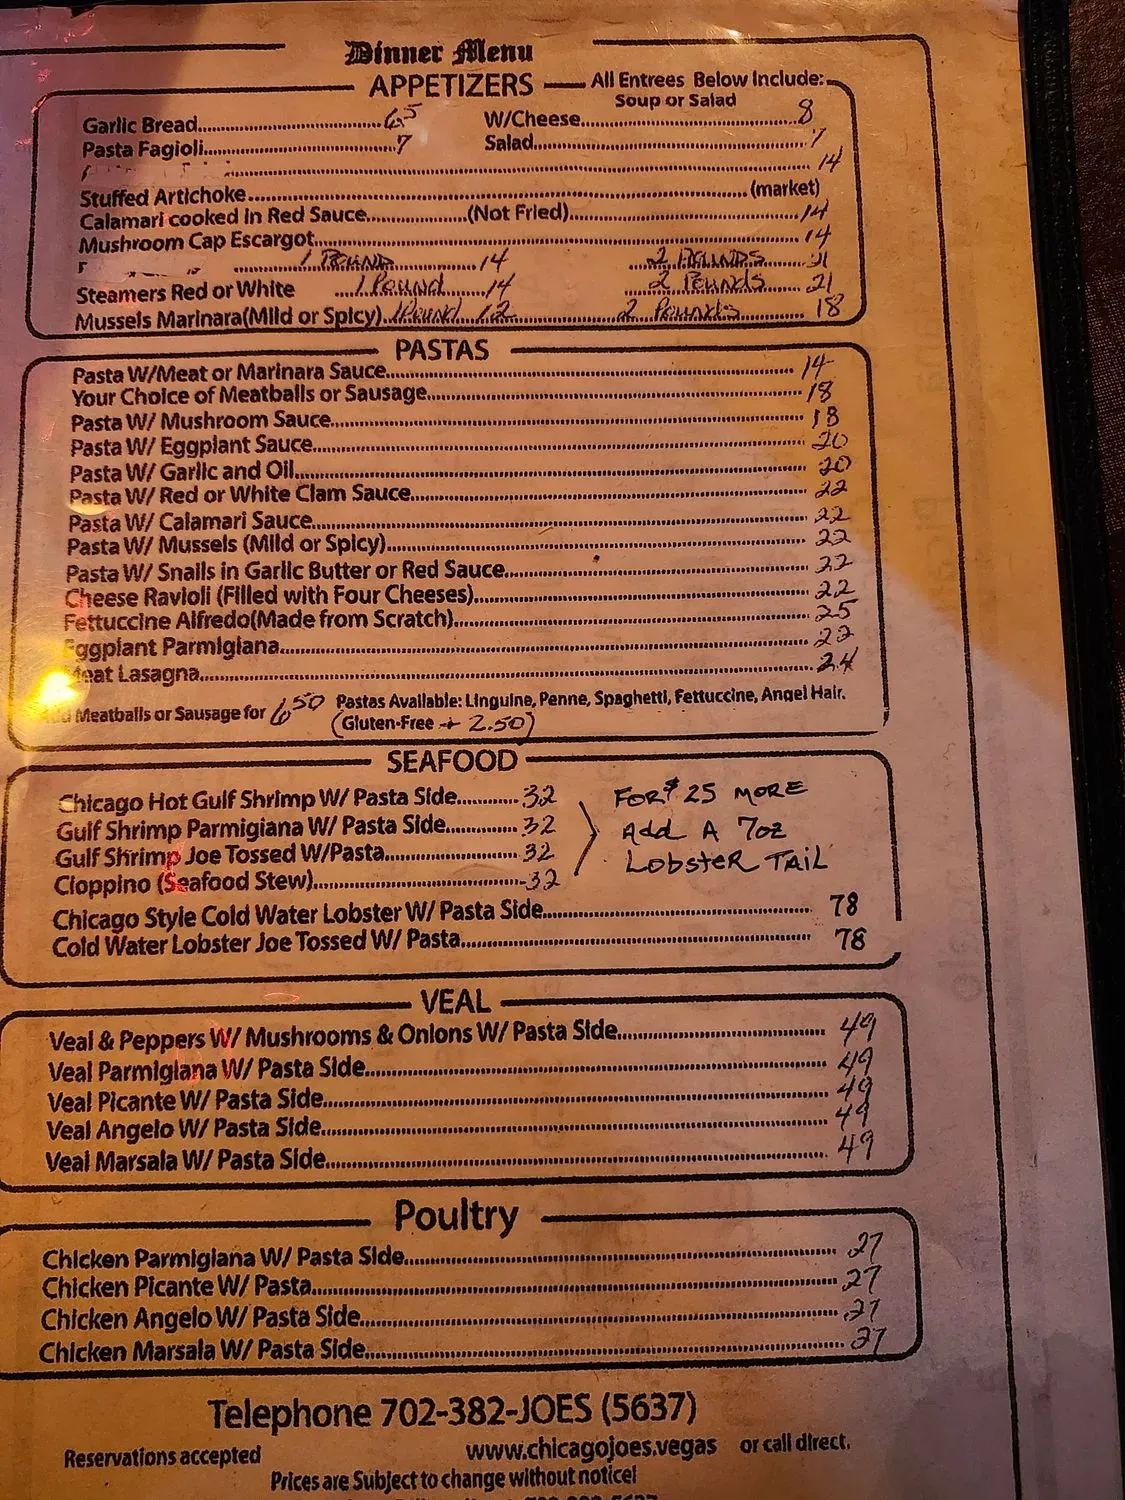 Dinner Menu
APPETIZERS
All Entrees Below Include:
Soup or Salad
Garlic Bread 6.5 W/Cheese 8
Pasta Fagioli 7 Salad 7
14
Stuffed Artichoke (market)
Calamari cooked in Red Sauce (Not Fried) 14
Mushroom Cap Escargot 14
1 POUND 14 2 POUNDS 21
Steamers Red or White 1 POUND 14 2 POUNDS 21
Mussels Marinara(Mild or Spicy) 1 POUND 12 2 POUNDS 18
PASTAS
Pasta W/Meat or Marinara Sauce 14
Your Choice of Meatballs or Sausage 18
Pasta W/ Mushroom Sauce 18
Pasta W/ Eggplant Sauce 20
Pasta W/ Garlic and Oil 20
Pasta W/ Red or White Clam Sauce 22
Pasta W/ Calamari Sauce 22
Pasta W/ Mussels (Mild or Spicy) 22
Pasta W/ Snails in Garlic Butter or Red Sauce 22
Cheese Ravioli (Filled with Four Cheeses) 22
Fettuccine Alfredo(Made from Scratch) 25
Eggplant Parmigiana 22
Meat Lasagna 24
Add Meatballs or Sausage for 6.50 Pastas Available: Linguine, Penne, Spaghetti, Fettuccine, Angel Hair.
(Gluten-Free + 2.50)
SEAFOOD
Chicago Hot Gulf Shrimp W/ Pasta Side 32 FOR $25 MORE
Gulf Shrimp Parmigiana W/ Pasta Side 32 Add A 7oz
Gulf Shrimp Joe Tossed W/Pasta 32 LOBSTER TAIL
Cioppino (Seafood Stew) 32
Chicago Style Cold Water Lobster W/ Pasta Side 78
Cold Water Lobster Joe Tossed W/ Pasta 78
VEAL
Veal & Peppers W/ Mushrooms & Onions W/ Pasta Side 49
Veal Parmigiana W/ Pasta Side 49
Veal Picante W/ Pasta Side 49
Veal Angelo W/ Pasta Side 49
Veal Marsala W/ Pasta Side 49
Poultry
Chicken Parmigiana W/ Pasta Side 27
Chicken Picante W/ Pasta 27
Chicken Angelo W/ Pasta Side 27
Chicken Marsala W/ Pasta Side 27
Telephone 702-382-JOES (5637)
Reservations accepted www.chicagojoes.vegas or call direct.
Prices are Subject to change without notice!